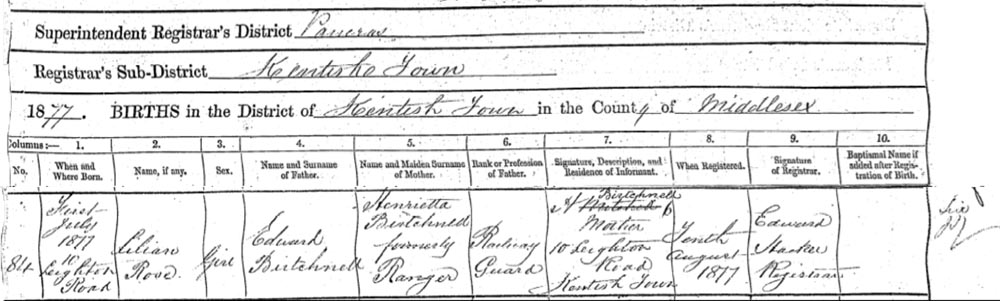 Superintendent Registrar's District Pancras
Registrar's Sub-District Kentish Town
1877. BIRTHS in the District of Kentish Town in the County of Middlesex
Columns:— 1. 2. 3. 4. 5. 6. 7. 8. 9. 10.
No. When and Where Born. Name, if any. Sex. Name and Surname of Father. Name and Maiden Surname of Mother. Rank or Profession of Father. Signature, Description, and Residence of Informant. When Registered. Signature of Registrar. Baptismal Name if added after Registration of Birth.
84
First
July
1877
10
Leighton
Road
Lilian
Rose
Girl
Edward
Birtchnell
Henrietta
Birtchnell
formerly
Ranger
Railway
Guard
Birtchnell
H
Mother
10 Leighton
Road
Kentish Town
Tenth
August
1877
Edward
Registrar